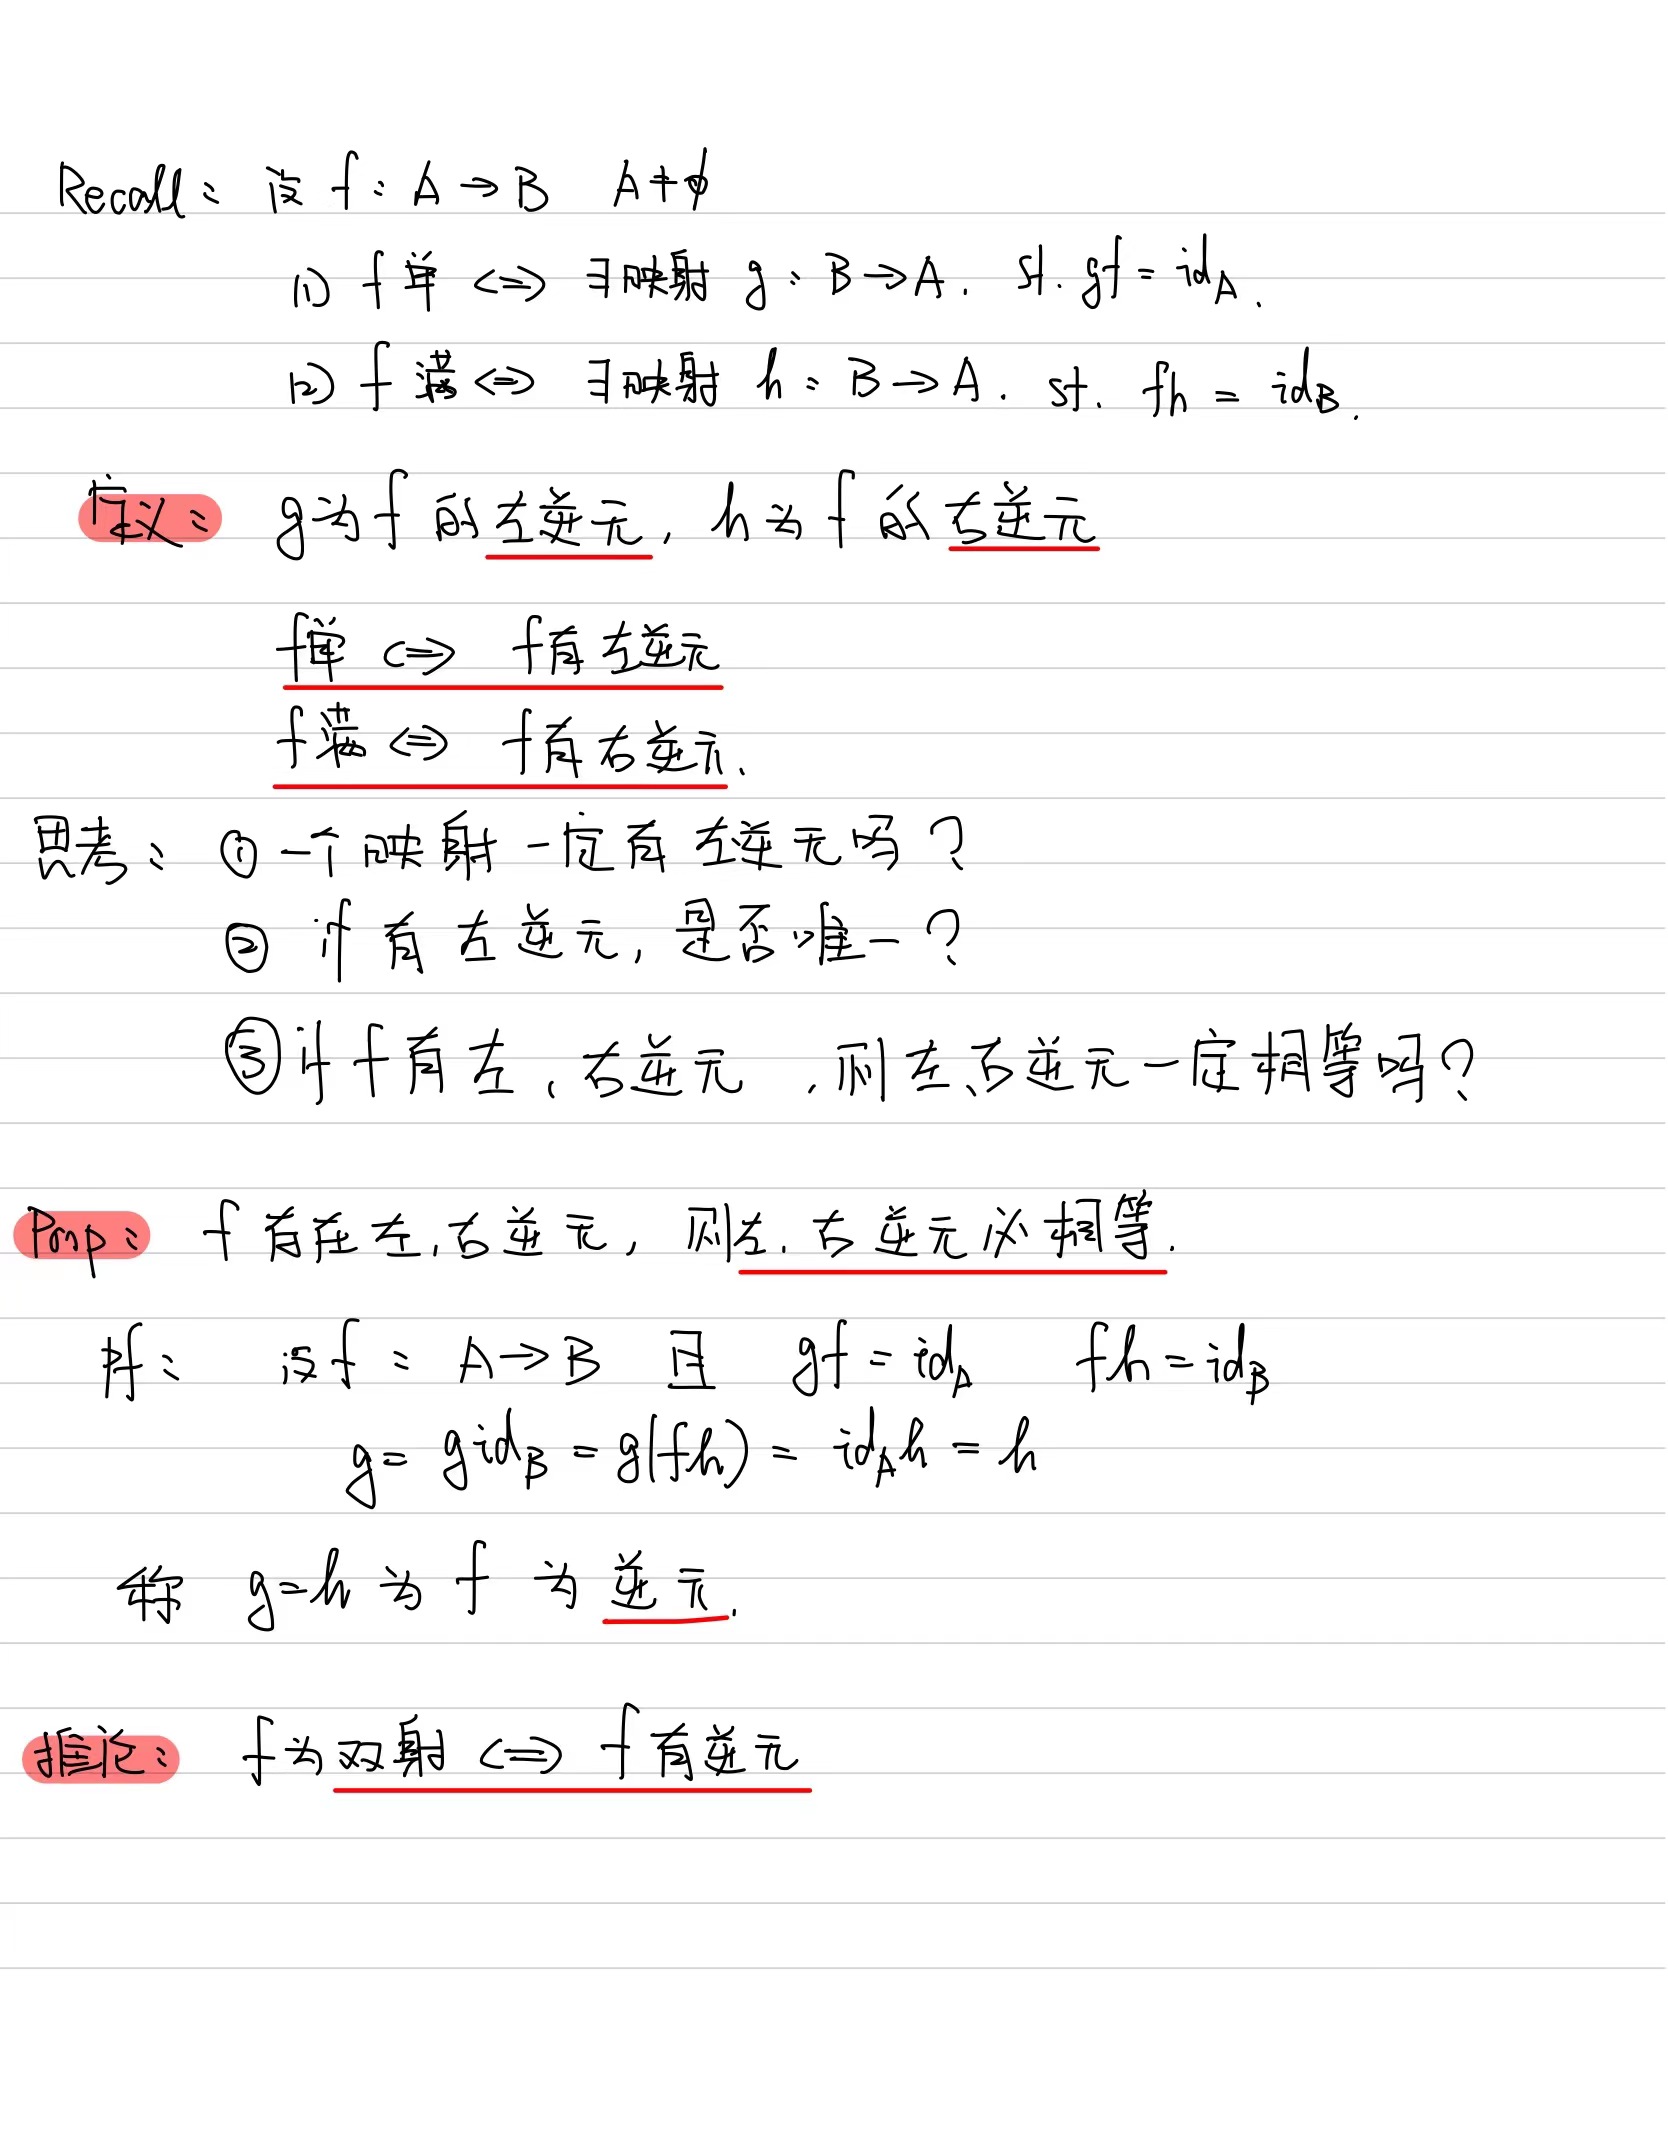 Recall: 设 f: A→B A≠ϕ
(1) f 单 <=> ∃映射 g: B→A. st. gf = id_A.
(2) f 满 <=> ∃映射 h: B→A. st. fh = id_B.
定义: g为f 的左逆元, h为f的右逆元
f单 <=> f有左逆元
f满 <=> f有右逆元.
思考: ① 一个映射一定有左逆元吗?
② if 有左逆元, 是否唯一?
③ if f有左、右逆元, 则左、右逆元一定相等吗?
Prop: f 存在左、右逆元, 则左、右逆元必相等.
pf: 设f: A→B 且 gf = id_A fh = id_B
g = g id_B = g(fh) = id_A h = h
称 g=h 为 f 为逆元.
推论: f为双射 <=> f有逆元